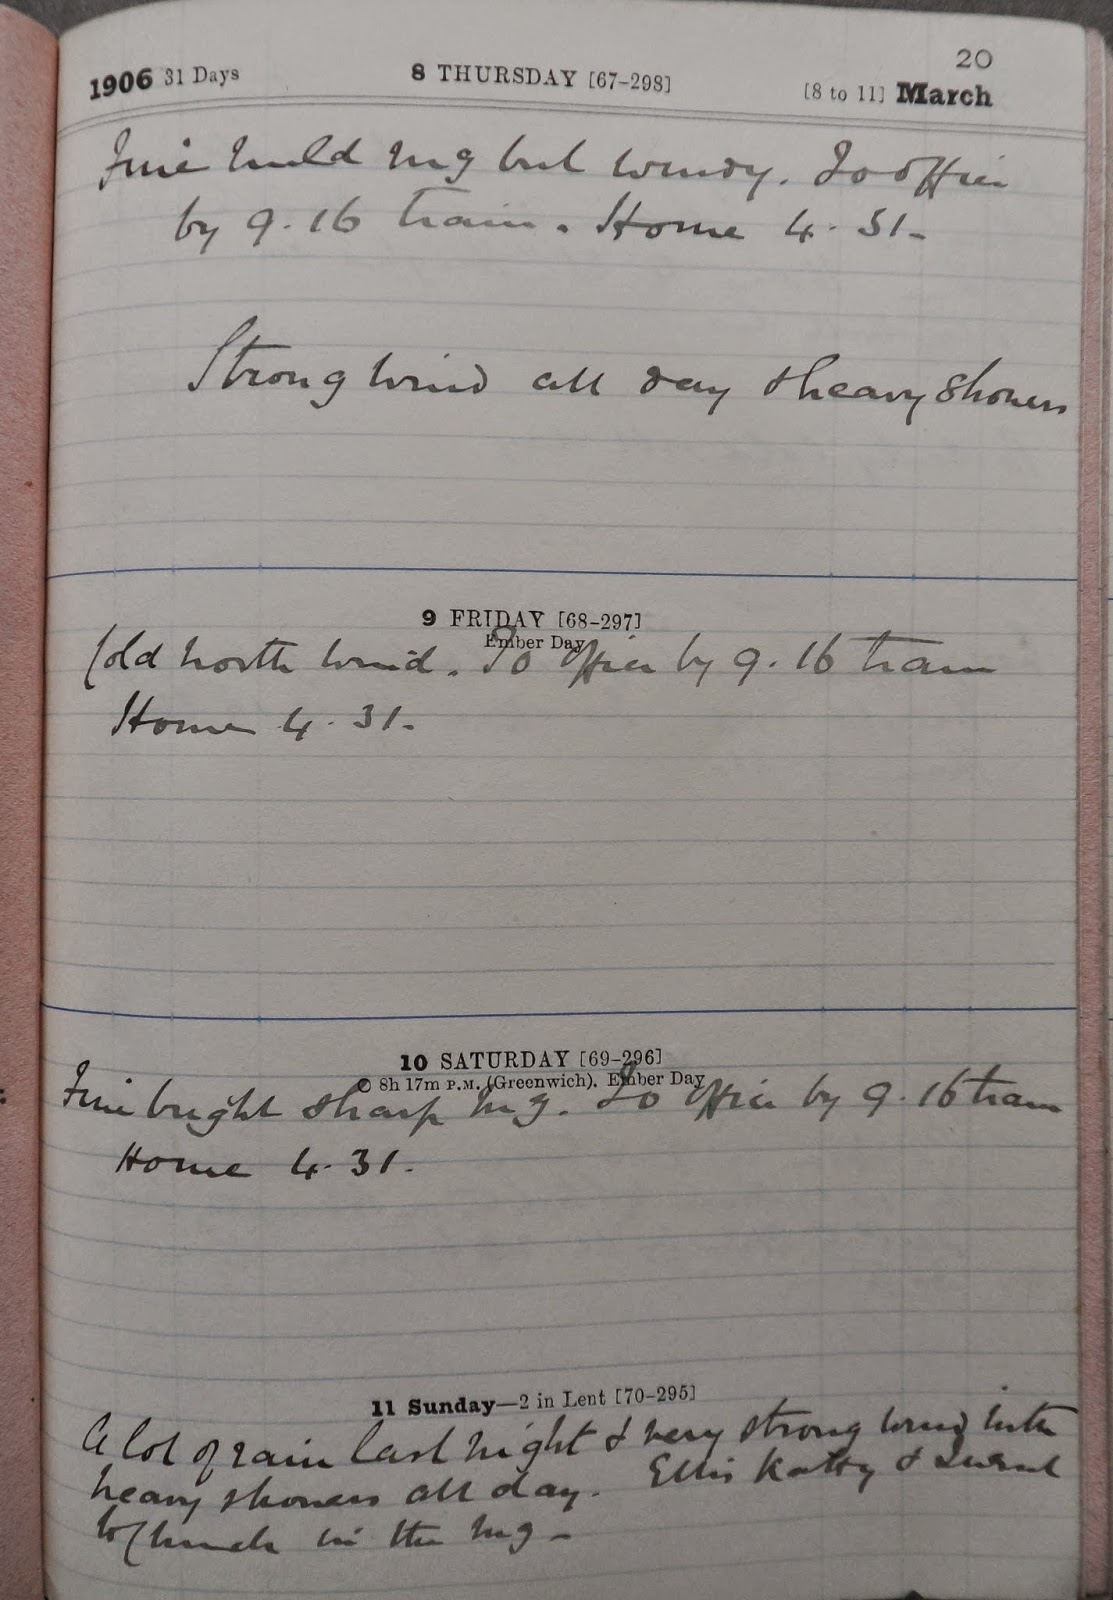 20
1906 31 Days 8 THURSDAY [67-298] [8 to 11] March
Fine mild mg but windy. To office
by 9.16 train. Home 4.31-
Strong wind all day & heavy showers
9 FRIDAY [68-297]
Ember Day
Cold north wind. To office by 9.16 train
Home 4.31-
10 SATURDAY [69-296]
8h 17m P.M. (Greenwich). Ember Day
Fine bright sharp mg. To office by 9.16 train
Home 4.31.
11 Sunday—2 in Lent [70-295]
A lot of rain last night & very strong wind with
heavy showers all day. Ellis Katty & I went
to Church in the mg-